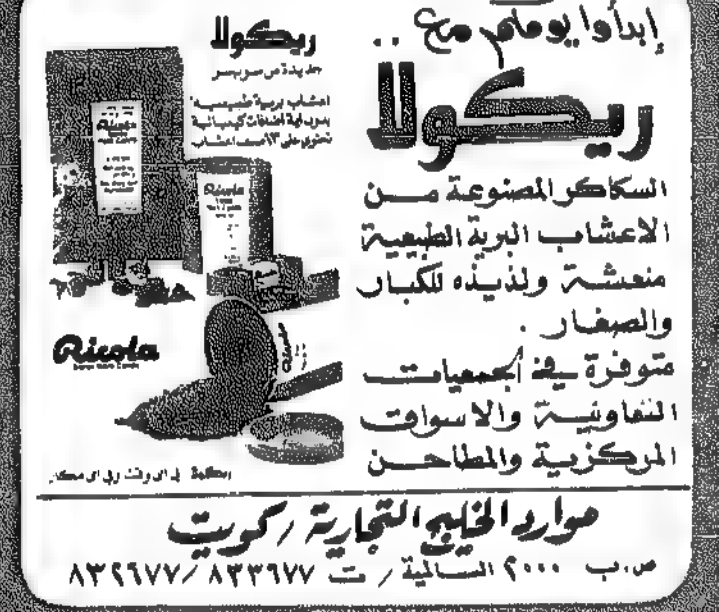 إبدأوا يومكم مع ..
ريكولا
السكاكر المصنوعة من
الاعشاب البرية الطبيعية
منعشة ولذيذه للكبار
والصغار .
متوفرة في الجمعيات
التعاونية والاسواق
المركزية والمطاحن
ريكولا
جديدة من سويسرا
اعشاب برية طبيعية
بدون اية اضافات كيميائية
تحتوي على ١٣ صنف اعشاب
Ricola
Ricola
Ricola
Ricola
ريكولا في اي وقت وفي اي مكان
موارد الخليج التجارية / كويت
ص.ب ٢٠٠٠ السالمية / ت ٨٣٣٦٧٧ / ٨٣٢٦٧٧